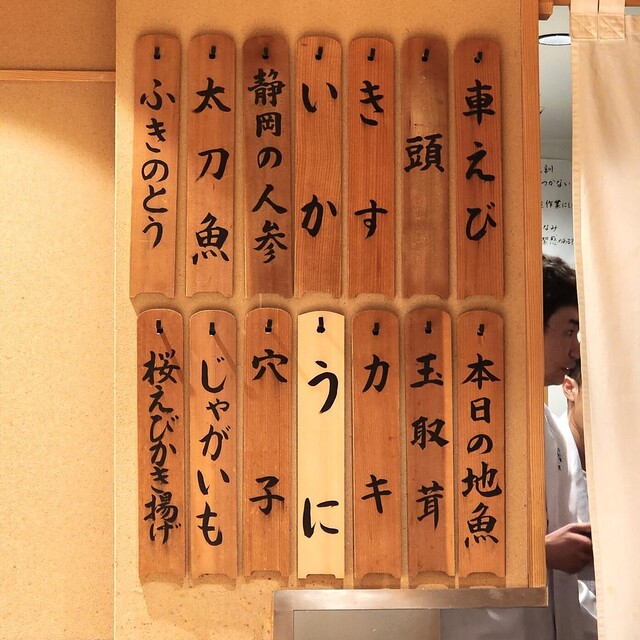 車えび
頭
きす
いか
静岡の人参
太刀魚
ふきのとう
本日の地魚
玉取茸
カキ
うに
穴子
じゃがいも
桜えびかき揚げ